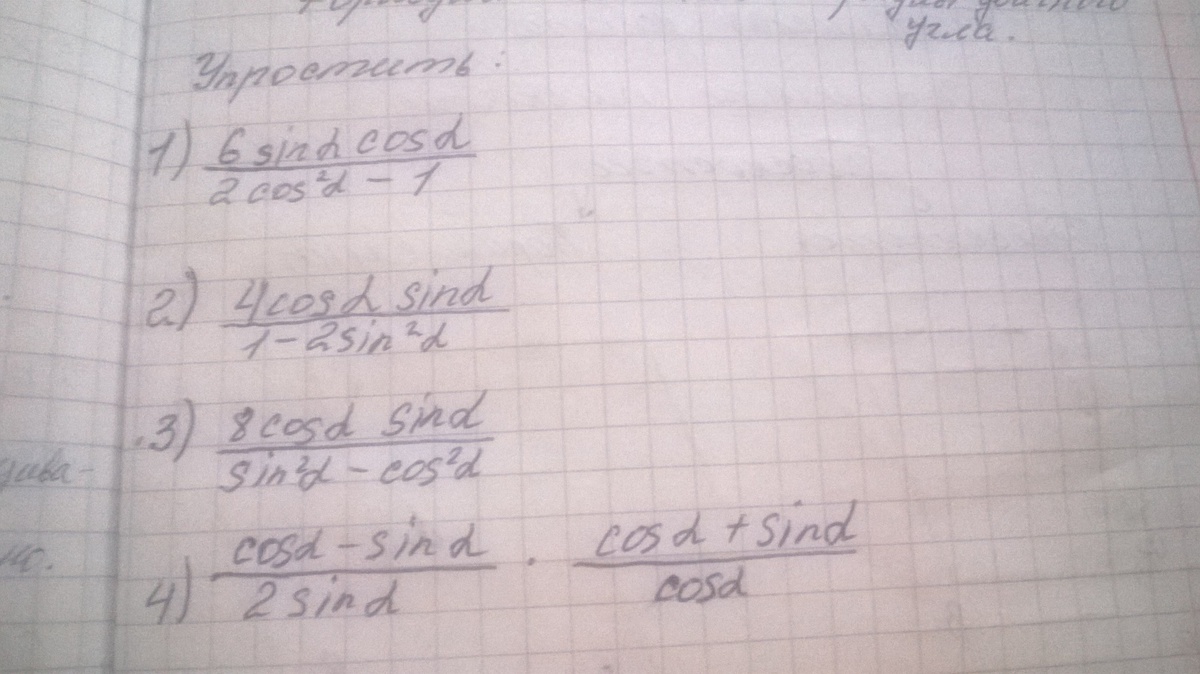 угла.
Упростить:
1) 6 sinα cosα / 2 cos²α - 1
2) 4 cosα sinα / 1 - 2 sin²α
3) 8 cosα sinα / sin²α - cos²α
4) cosα - sinα / 2 sinα · cosα + sinα / cosα